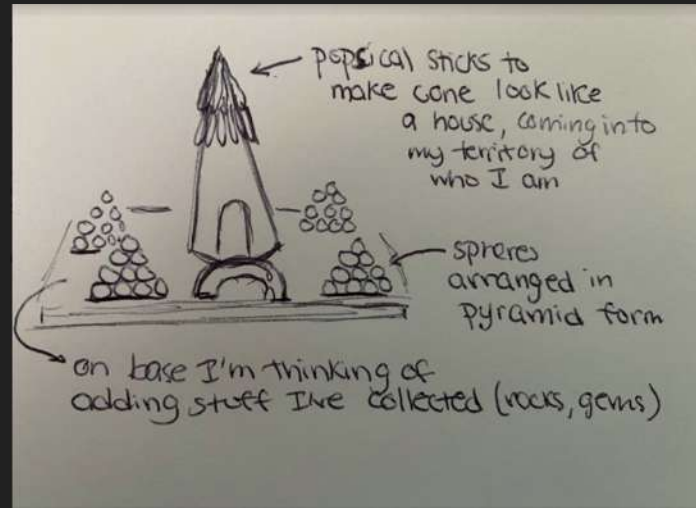 popsical sticks to
make cone look like
a house, coming into
my territory of
who I am
spheres
arranged in
pyramid form
on base I'm thinking of
adding stuff I've collected (rocks, gems)